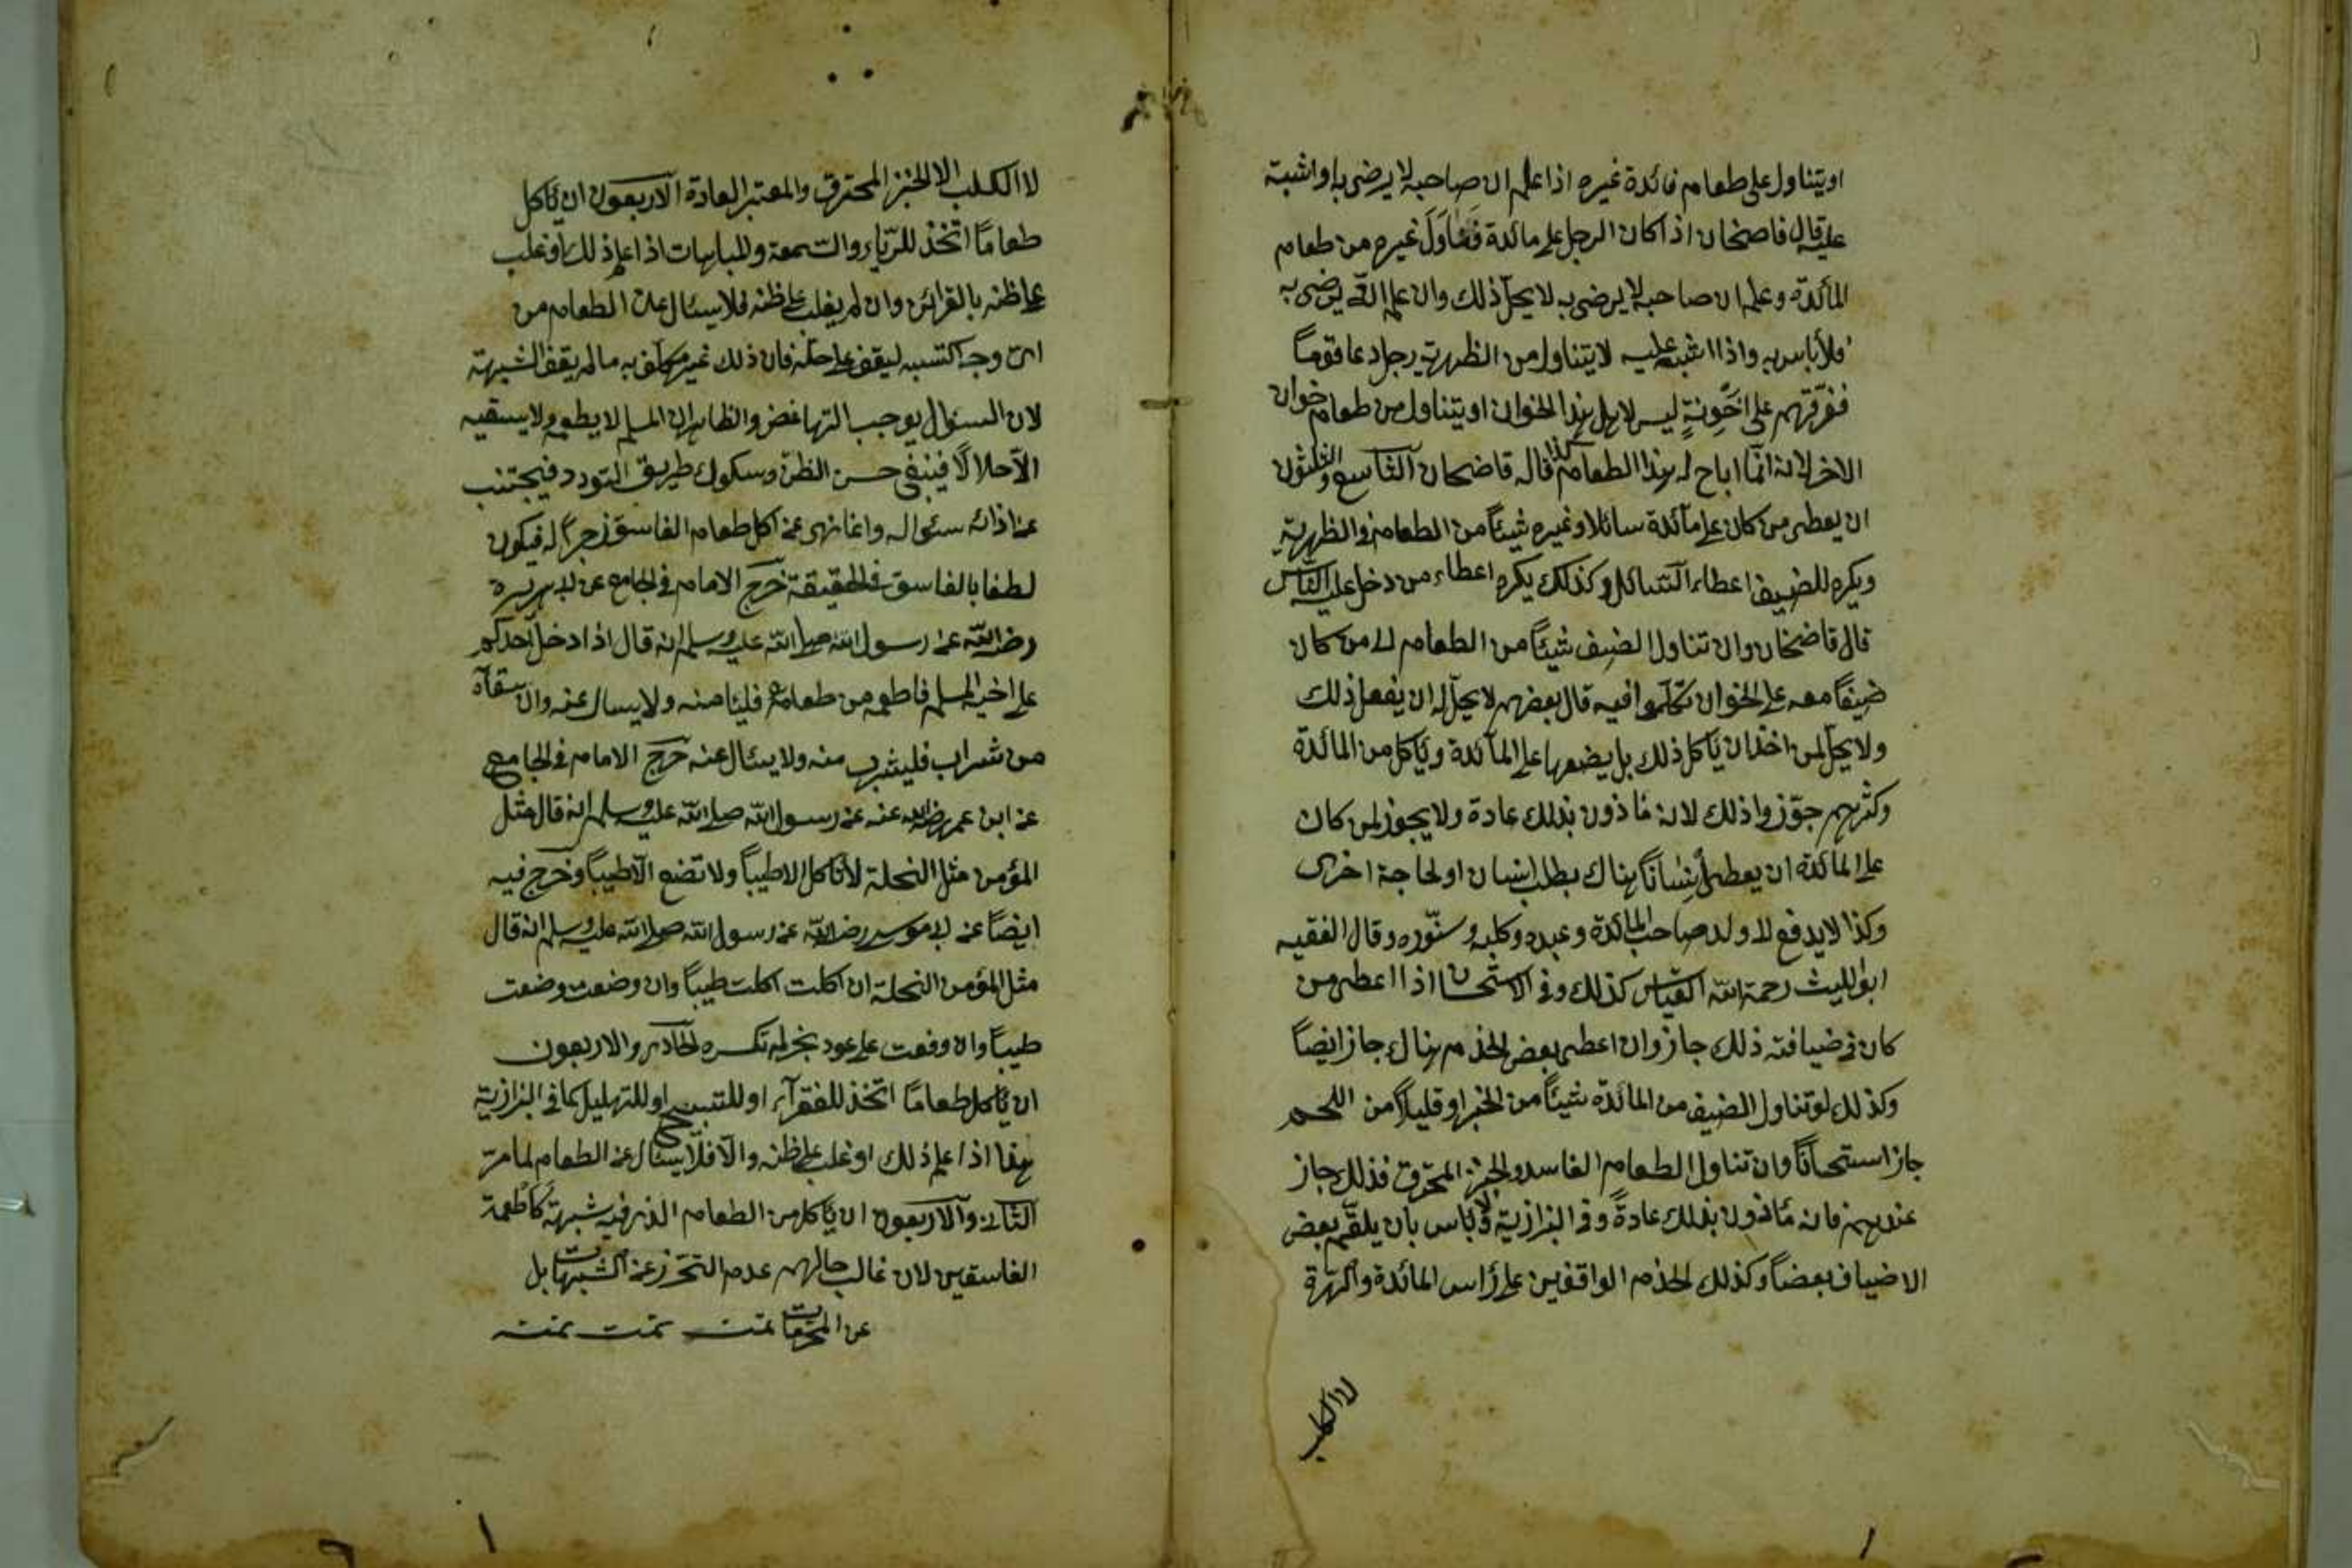 او يتناول على طعام فائدة غيره اذا علم ان صاحبه لا يرضى به او اشبته
عليه قال قاضخان اذا كان الرجل على مائدة فناول غيره من طعام
المائدة وعلم ان صاحبه لا يرضى به لا يحل ذلك وان علم انه يرضى به
فلا بأس به واذا اشبته عليه لا يتناول من الظهرية رجل دعا قوماً
ففرّقهم على اخونةٍ ليس لاهل هذا الخوان ان يتناول من طعام خوان
الاخر لانه انّما اباح له هذا الطعام كذا قاله قاضخان التاسع والثلثون
ان يعطى من كان على مآئدة سائلا وغيره شيئاً من الطعام وفى الظهريّة
ويكره للضيف اعطاء السّائل وكذلك يكره اعطاء من دخل عليه الناس
قال قاضخان وان تناول الضيف شيئاً من الطعام الى من كان
ضيفاً معه على الخوان تكلّموا فيه قال بعضهم لا يحلّ له ان يفعل ذلك
ولا يحلّ لمن اخذ ان يأكل ذلك بل يضعها على المآئدة ويأكل من المائدة
وكثرهم جوّزوا ذلك لانه مأذون بذلك عادة ولا يجوز لمن كان
على المائدة ان يعطى انساناً هناك بطلب انسان او لحاجة اخرى
وكذا لا يدفع الى ولد صاحب المائدة وعبده وكلبه وسنّوره وقال الفقيه
ابو الليث رحمة الله القياس كذلك وفى الاستحسان اذا اعطى من
كان فى ضيافته ذلك جاز وان اعطى بعض الخدم هناك جاز ايضاً
وكذلك لو تناول الضيف من المائدة شيئاً من الخبز او قليلاً من اللحم
جاز استحساناً وان تناول الطعام الفاسد والخبز المحترق فذلك جاز
عندهم فانه مأذون بذلك عادةً وفى البزازية ولا بأس بان يلقّم بعض
الاضياف بعضاً وكذلك الخدم الواقفين على رأس المائدة والهرّة
لا الكلب
لا الكلب الا الخبز المحترق والمعتبر العادة الاربعون ان يأكل
طعاماً اتخذ للرّياء والسّمعة والمباهات اذا علم ذلك او غلب
على ظنه بالقرائن وان لم يغلب على ظنه فلا يسئال عن الطعام من
اىّ وجه اكتسبه ليقف على حلّه فان ذلك غير مكلّف به ما لم يقف الشبهة
لان السئول يوجب التباغض والظاهر ان المسلم لا يطعم ولا يسقيه
الّا حلالاً فينبغى حسن الظنّ وسكوك طريق التودد فيجتنب
عن اذائه سئواله وانما نهى عن اكل طعام الفاسق زجراً له فيكون
لطفا بالفاسق فى الحقيقة خرّج الامام فى الجامع عن ابى هريرة
رضى الله عنه رسول الله صلى الله عليه وسلم انه قال اذا دخل احدكم
على اخيه المسلم فاطعمه من طعامه فليأ منه ولا يسال عنه وان سقاه
من شراب فليشرب منه ولا يسئال عنه خرّج الامام فى الجامع
عن ابن عمر رضى الله عنه عن رسول الله صلى الله عليه وسلم انه قال مثل
المؤمن مثل النحلة لا تأكل الا طيباً ولا تضع الّا طيباً وخرّج فيه
ايضاً عن ابى موسى رضى الله عن رسول الله صلى الله عليه وسلم انه قال
مثل المؤمن النحلة ان اكلت اكلت طيباً وان وضعت وضعت
طيباً وان وقعت على عود نخر لم تكسره الحادى والاربعون
ان يأكل طعاماً اتخذ للفقرآء او للتسبيح او للتهليل كما فى البزازية
هذا اذا علم ذلك او غلب على ظنه والّا فلا يسئال عن الطعام لما مرّ
الثانى والاربعون ان يأكل من الطعام الذى فيه شبهة كأطعمة
الفاسقين لان غالب حالهم عدم التحرّز عن الشبهات بل
عن المحرّمات تمت تمت تمت